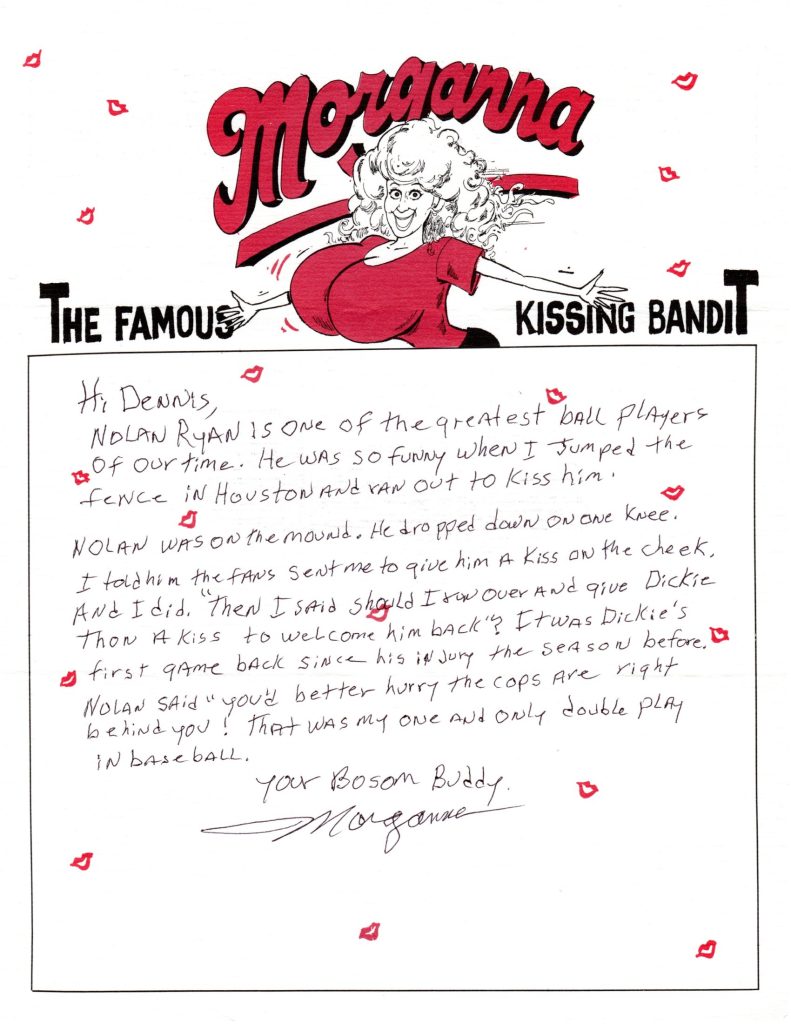 Morganna
THE FAMOUS KISSING BANDIT
Hi Dennis,
Nolan Ryan is one of the greatest ball players
of our time. He was so funny when I jumped the
fence in Houston and ran out to kiss him.
Nolan was on the mound. He dropped down on one knee.
I told him the fans sent me to give him a kiss on the cheek.
And I did. "Then I said should I run over and give Dickie
Thon a kiss to welcome him back"? It was Dickie's
first game back since his injury the season before.
Nolan said "you'd better hurry the cops are right
behind you! That was my one and only double play
in baseball.
Your Bosom Buddy.
Morganna